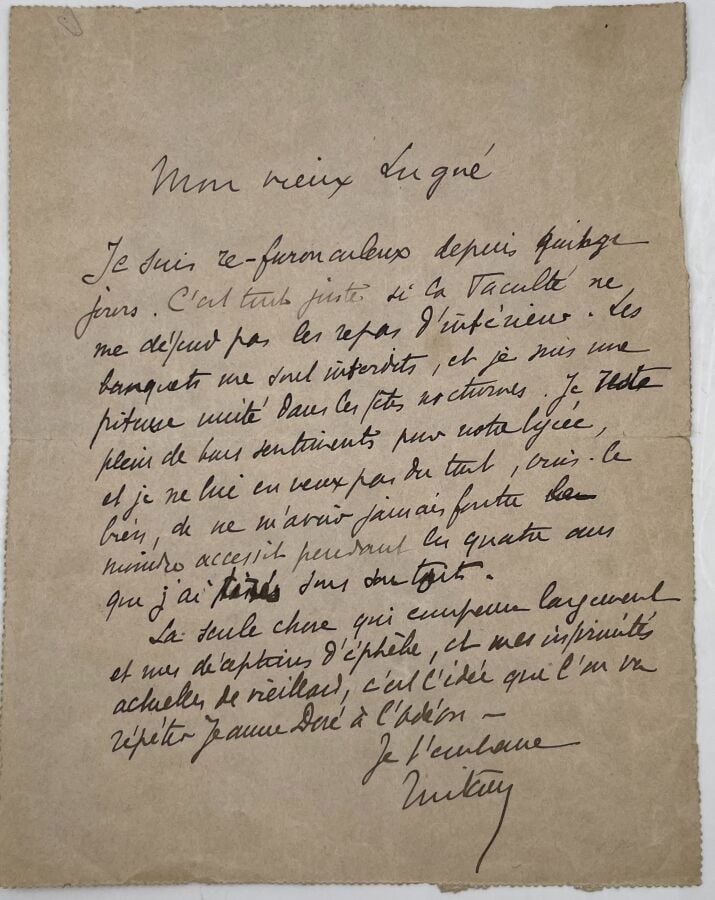 Mon vieux Lugné
Je suis re-furonculeux depuis quinze
jours. C'est tout juste si la Faculté ne
me défend pas les repas d'intérieur. Les
banquets me sont interdits, et je suis une
piteuse unité dans les fêtes nocturnes. Je reste
plein de bons sentiments pour notre lycée,
et je ne lui en veux pas du tout, crois-le
bien, de ne m'avoir jamais foutu le
moindre accessit pendant les quatre ans
que j'ai tirés sous son toit.
La seule chose qui compense largement
et mes déceptions d'éphèbe, et mes infirmités
actuelles de vieillard, c'est l'idée que l'on va
répéter Jeanne Doré à l'Odéon –
Je t'embrasse